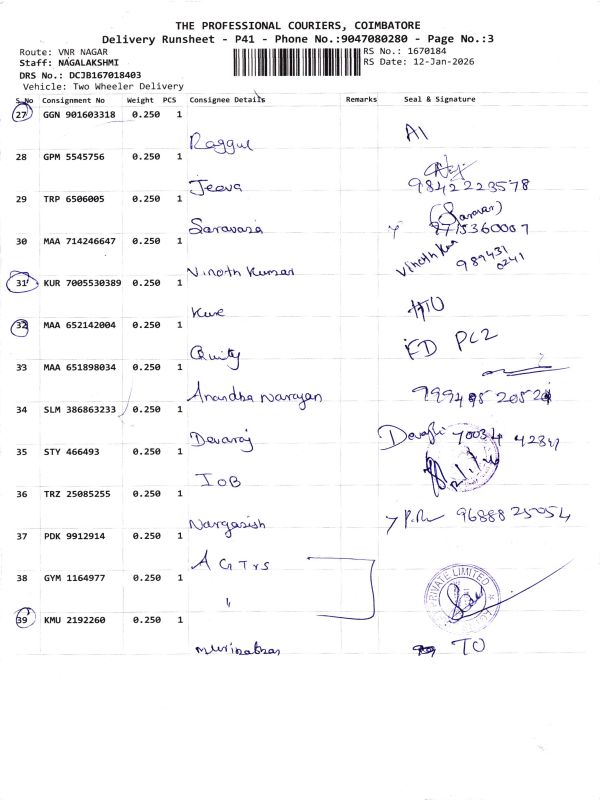 THE PROFESSIONAL COURIERS, COIMBATORE
Delivery Runsheet - P41 - Phone No.:9047080280 - Page No.:3
Route: VNR NAGAR
RS No.: 1670184
Staff: NAGALAKSHMI
RS Date: 12-Jan-2026
DRS No.: DCJB167018403
Vehicle: Two Wheeler Delivery
S.No Consignment No Weight PCS Consignee Details Remarks Seal & Signature
27 GGN 901603318 0.250 1
Raggul AI
28 GPM 5545756 0.250 1
Jeeva 9842223578
29 TRP 6506005 0.250 1
Saravana (Saravar)
30 MAA 714246647 0.250 1
Vinoth Kumar Vinoth Kum 989431 0241
31 KUR 7005530389 0.250 1
32 MAA 652142004 0.250 1
FD PC2
33 MAA 651898034 0.250 1
Anandha Narayan
34 SLM 386863233 0.250 1
Devaraj
35 STY 466493 0.250 1
IOB
36 TRZ 25085255 0.250 1
Nargasish 96888 25054
37 PDK 9912914 0.250 1
38 GYM 1164977 0.250 1
" PRIVATE LIMITED
39 KMU 2192260 0.250 1
TO